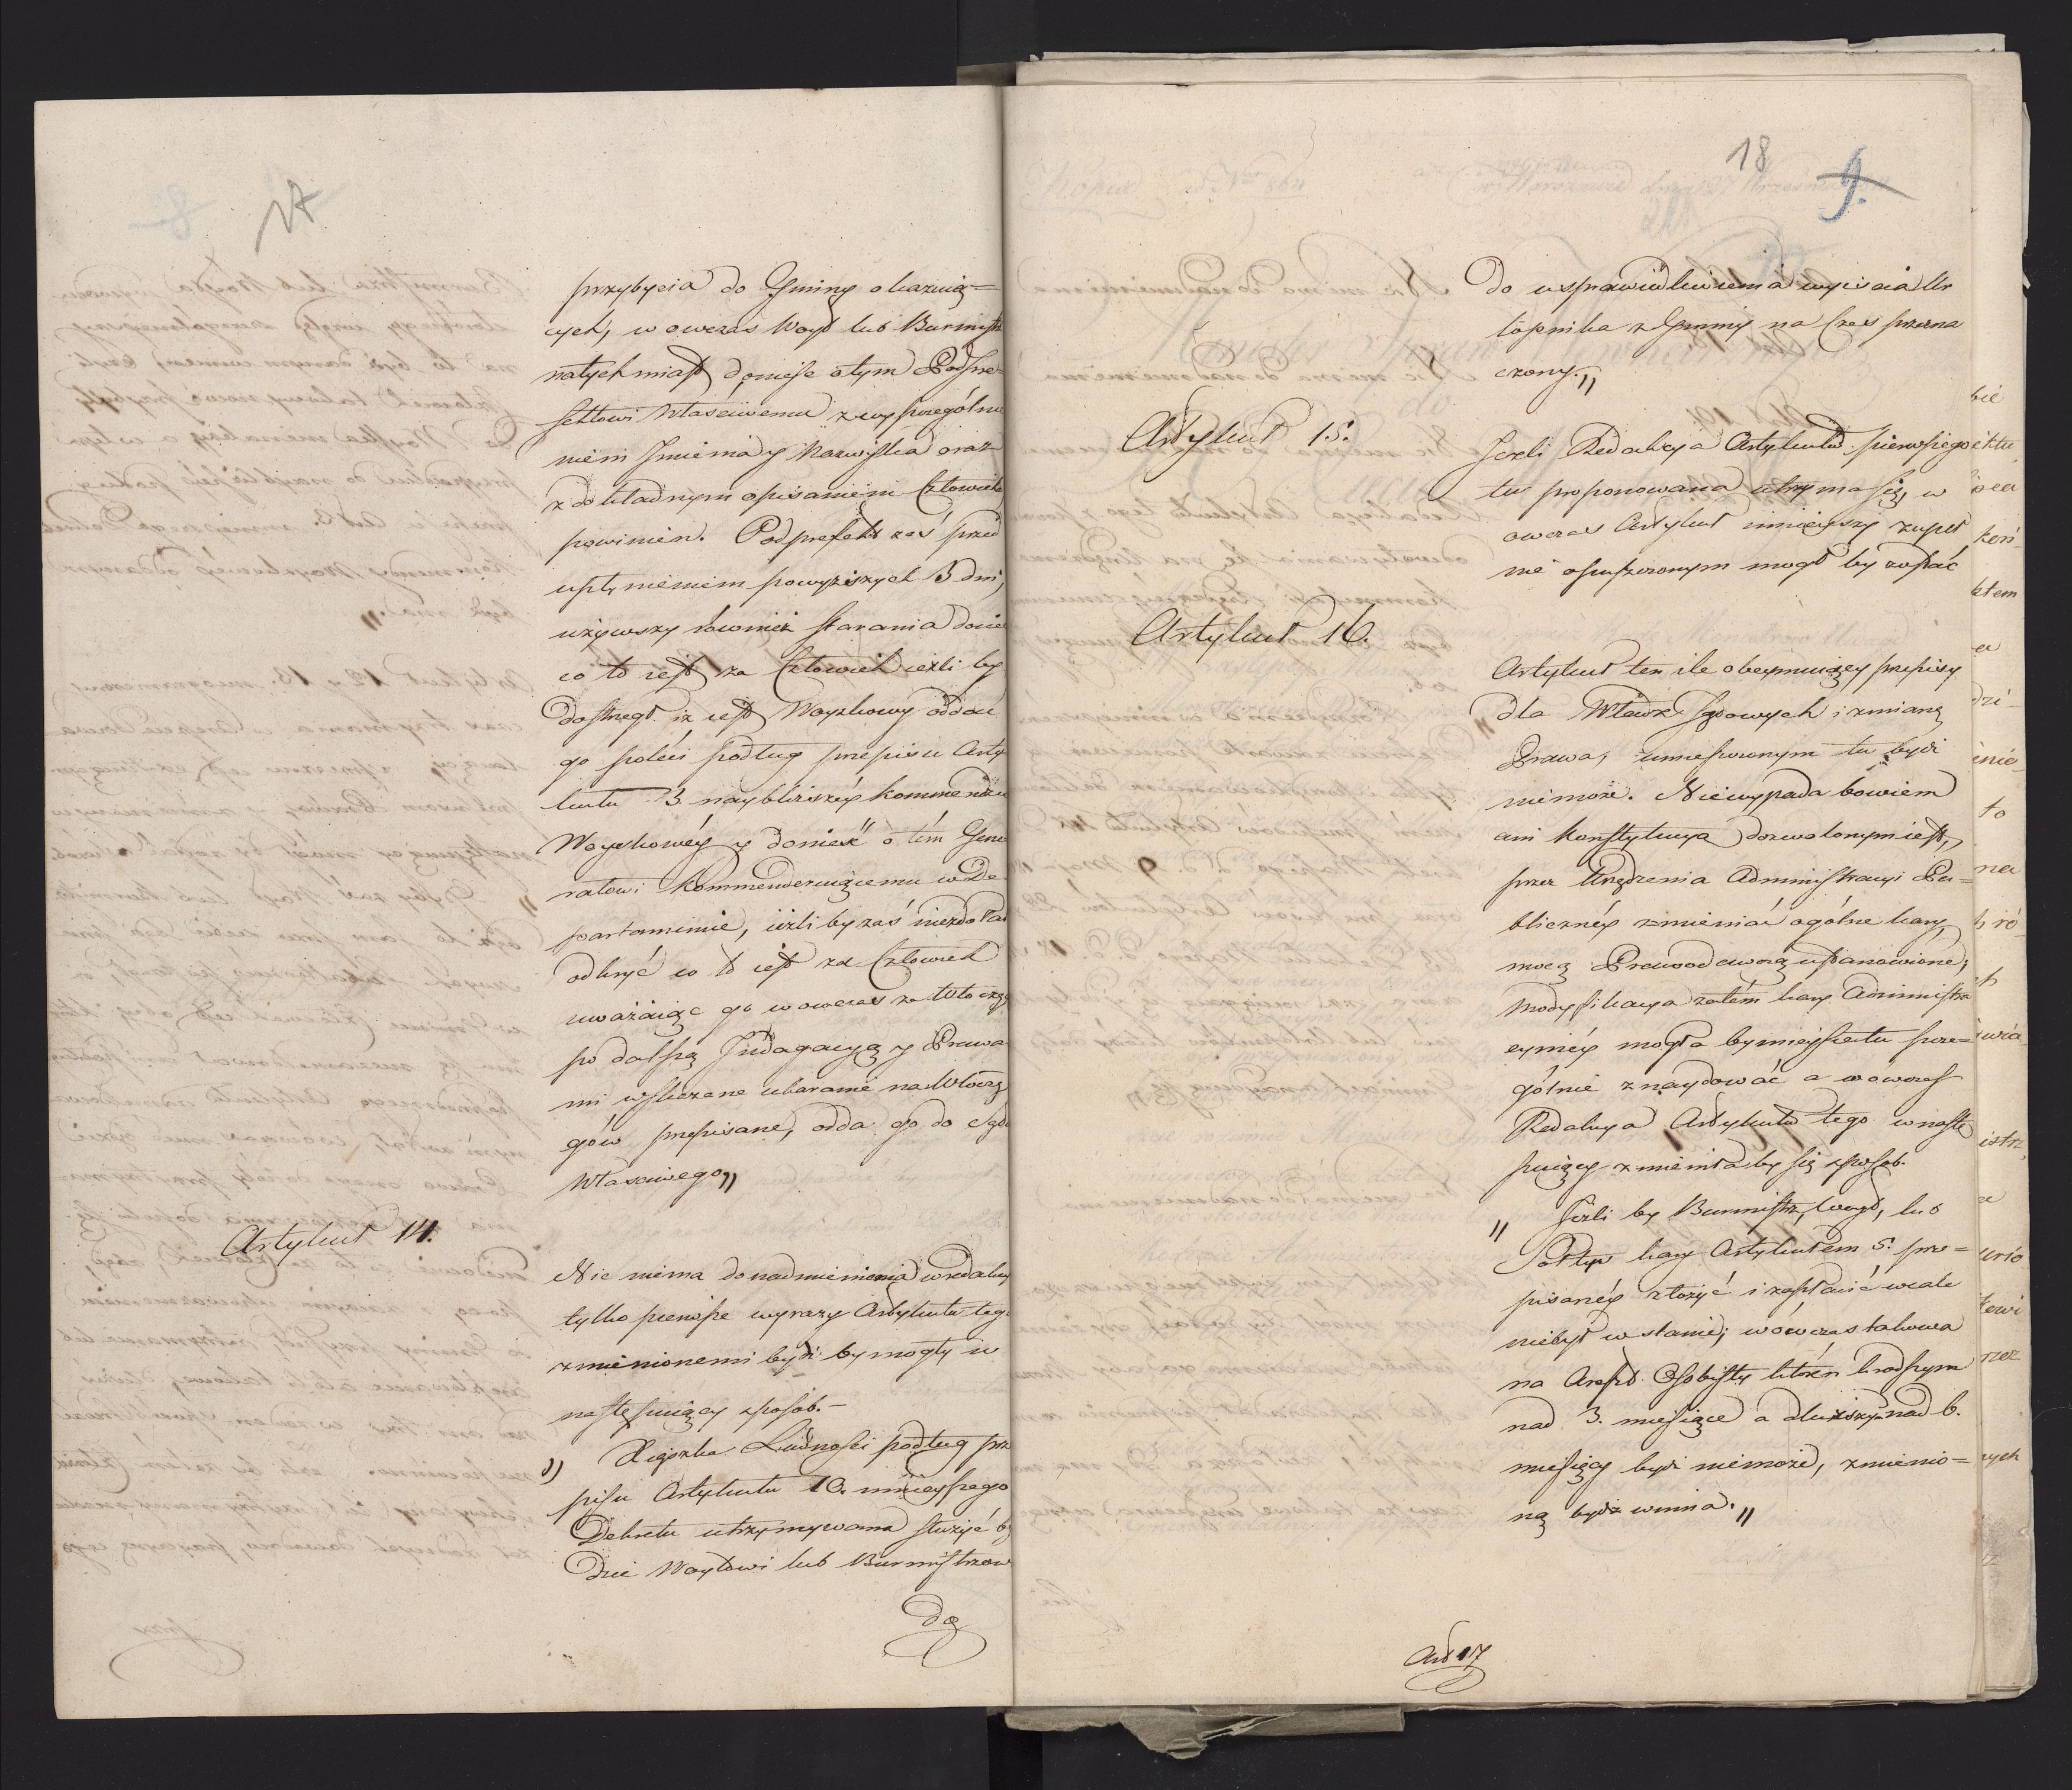 17
przybycia do Gminy okazuią=
cych, w owczas Woyt lub Burmistr
natychmiast doniesc otym Podpre=
fektowi Właściwemu z wyszczególnie
niem Jmienia y Nazwiska oraz
z dokładnym opisaniem Człowieka
powinien. Podprefekt zaś przed
upłynieniem powyższych 3 dni,
używszy rownież starania docie
co to iest za Człowiek ieżli by
dostrzegł iż iest Woyskowy oddać
go poleci podług przepisu Arty
kułu 3. naybliższéy kommendzie
Woyskowéy y donieść o tém Gene
rałowi Kommenderuiącemu w De
partamencie, ieżli by zaś niezdołał
odkryć co to iest za Człowiek
uważaiąc go wowczas za Włoczę
po dalszą Jndagacyą y Prawa
mi wskazane ukaranie na Włóczę
gów przepisane, odda go do Sądu
Własciwego„
Artykuł 14.
Nic niema do nadmienienia w redakcy
tylko pierwsze wyrazy Artykułu tego
zmienionemi bydź by mogły w
następuiący sposób.–
„ Xiążka Ludności podług prze
pisu Artykułu 10. ninieyszego
Dekretu utrzymywana służyć bę
dzie Woytowi lub Burmistrzow
do
18
9.
do usprawiedliwienia wyiscia Ur
lopnika z Gminy na Czas przezna
czony.„
Artykuł 15.
Jeżli Redakcya Artykułu pierwszego
tu proponowana utrzyma się, w
owczas Artykuł ninieyszy zupeł
nie opuszczonym mogł by zostać
Artykuł 16.
Artykuł ten ile obeymuiący przepisy
dla Władz Sądowych i zmianę
Prawa, umieszczonym tu bydź
niemoże. Niewypada bowiem
ani Konstytucya dozwolonym iest,
przez Urządzenia Administracyi Pu=
blicznéy zmieniać ogólne kary,
mocą Prawodawczą ustanowione;
Modyfikacya zatém kary Administra
cyinéy mogła by mieysce tu szcze=
gólnie znaydować a wówczas
Redakcya Artykułu tego w nastę
puiący zmieniłaby się sposob.
„ Jeżli by Burmistrz, Woyt, lub
Sołtys kary Artykułem 5. prze=
pisanéy złożyć i zapłacić wcale
niebył w stanie; wówczas takowa
na Areszt Osobisty któren krodszym
nad 3. miesiące a dłuższym nad 6.
miesięcy bydź niemoże, zmienio=
ną bydz winna.„
Art 17